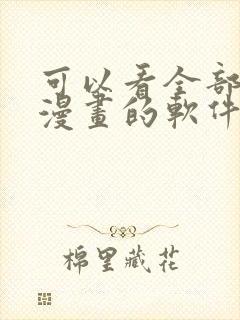 可以看全部
漫畫的軟件
棉里藏花